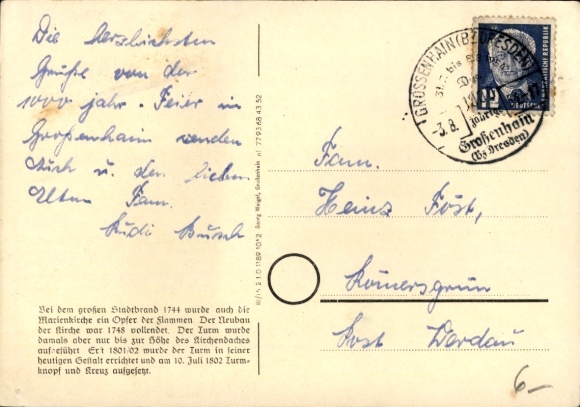 Die herzlichsten
Grüße von der
1000 jahr. Feier in
Großenhain senden
Euch u. den lieben
Eltern Fam.
Rudi Busch
Bei dem großen Stadtbrand 1744 wurde auch die
Marienkirche ein Opfer der Flammen. Der Neubau
der Kirche war 1748 vollendet. Der Turm wurde
damals aber nur bis zur Höhe des Kirchendaches
aufgeführt. Erst 1801/02 wurde der Turm in seiner
heutigen Gestalt errichtet und am 10. Juli 1802 Turm-
knopf und Kreuz aufgesetzt.
III/14 2 1.0 1189 10 52 Georg Weigel, Großenhain
GROSSENHAIN (BZ DRESDEN)
31. bis
-3.8.
Großenhain
(Bz Dresden)
12
Fam.
Heinz Föst,
Römersgrün
Post Werdau
6-